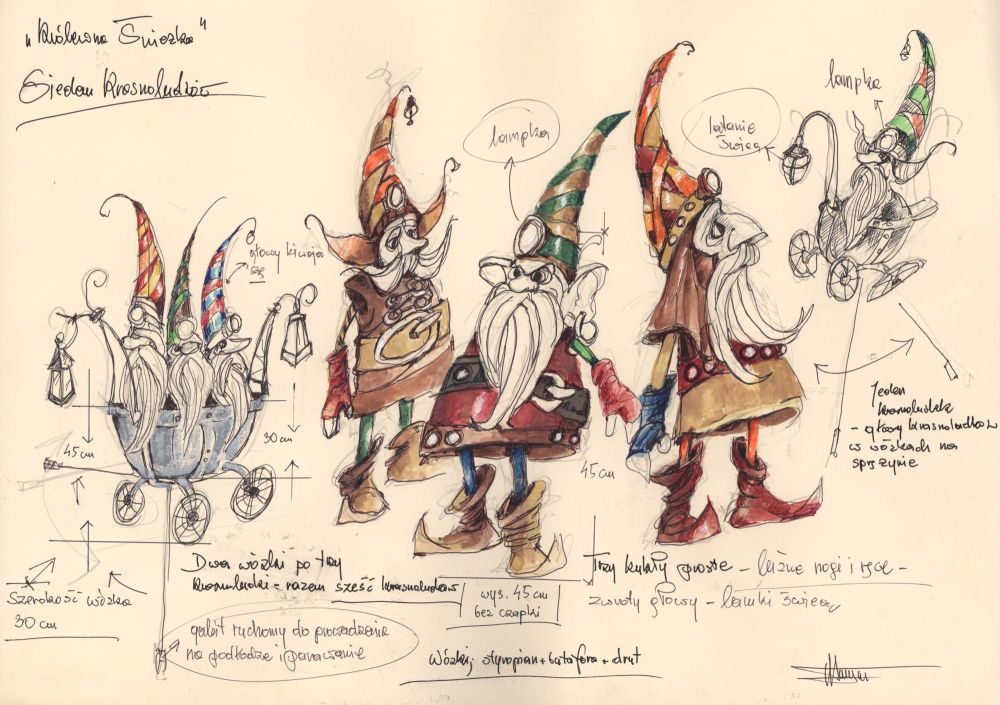 „Królewna Śnieżka"
Siedem Krasnoludków
lampka
latanie
świecą
lampka
głowy kiwają
się
45 cm
30 cm
45 cm
Jeden
krasnoludek
- głowy krasnoludków
w wózkach na
sprężynie
Dwa wózki po trzy
krasnoludki - razem sześć krasnoludków
wys. 45 cm
bez czapki
Trzy kukły proste - luźne nogi i ręce -
zwroty głowy - lampki świecą
Szerokość wózka
30 cm
gabit ruchomy do prowadzenia
na podłodze i
Wózki; styropian + + drut